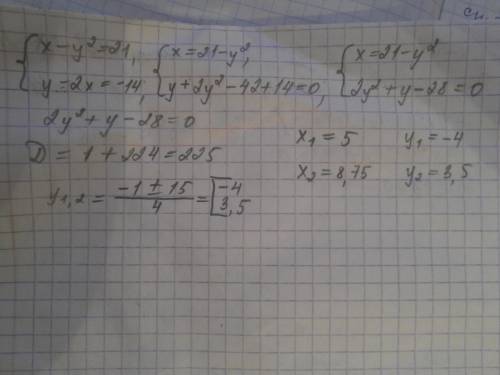 {x-y²=21, {x=21-y², {x=21-y²
{y=2x=-14, {y+2y²-42+14=0, {2y²+y-28=0
2y²+y-28=0
D = 1+224=225
y₁,₂ = (-1±15)/4 = [-4
3,5
x₁=5 y₁=-4
x₂=8,75 y₂=3,5